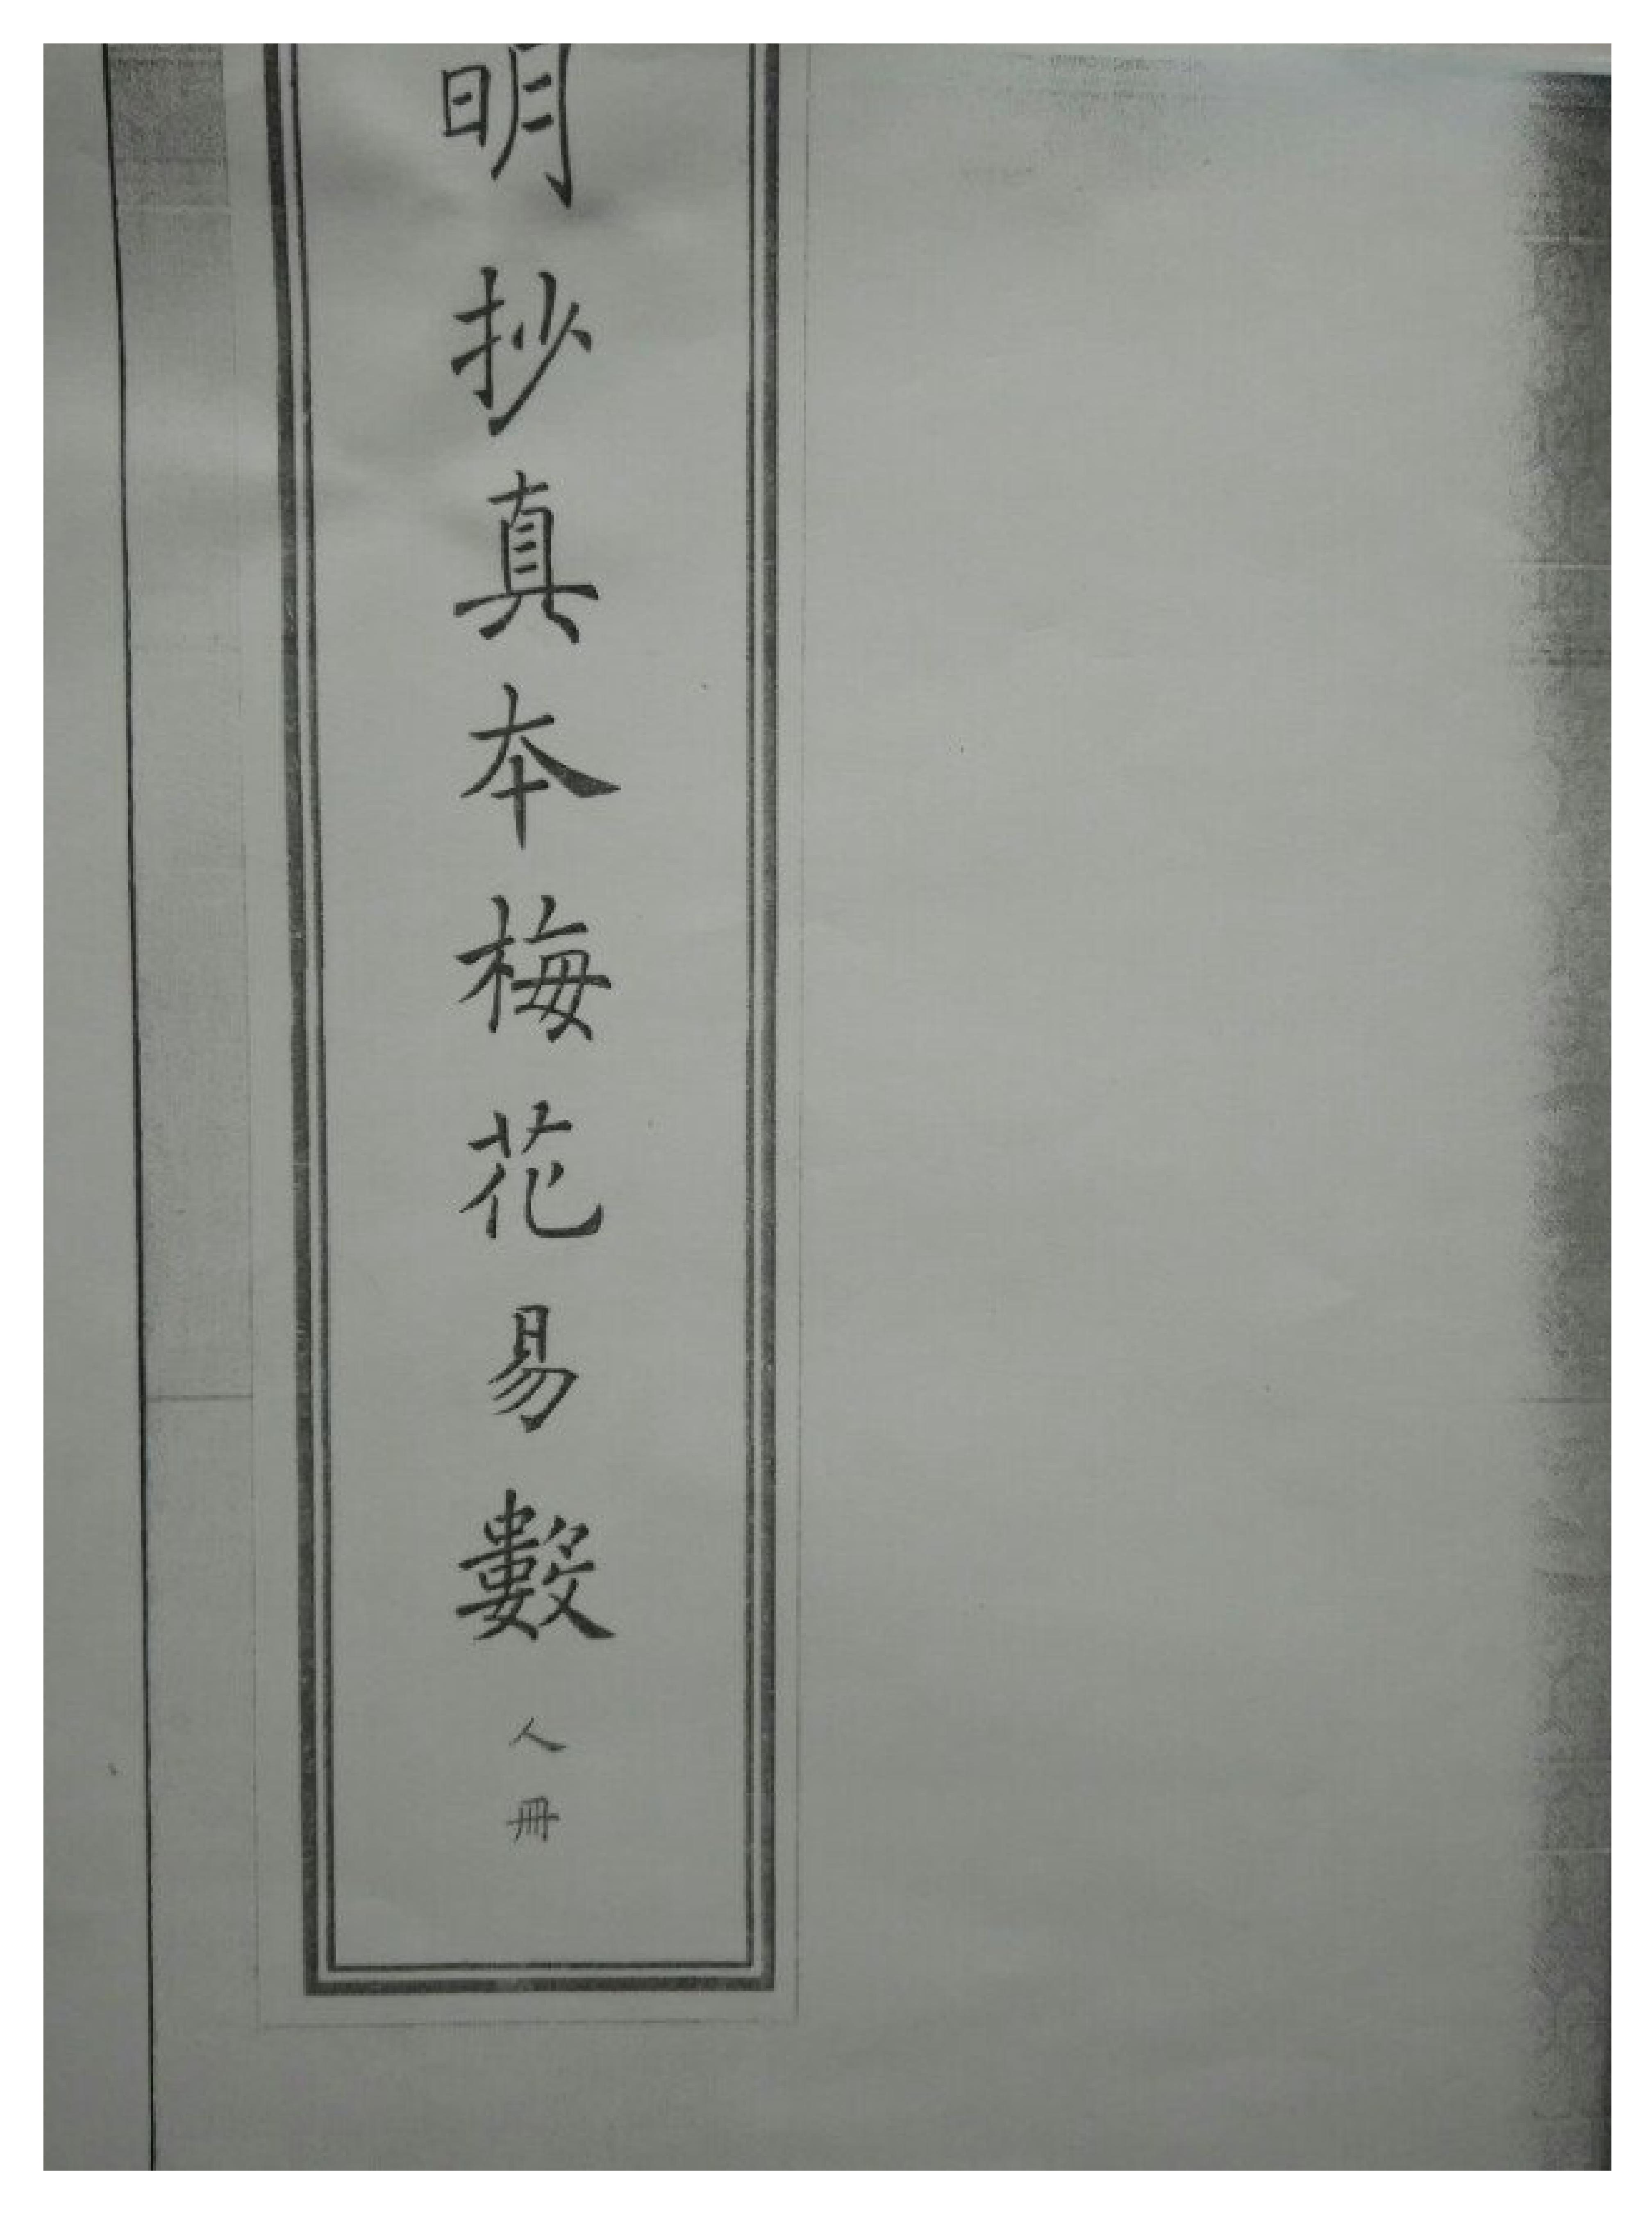 明抄真本梅花易數
人冊